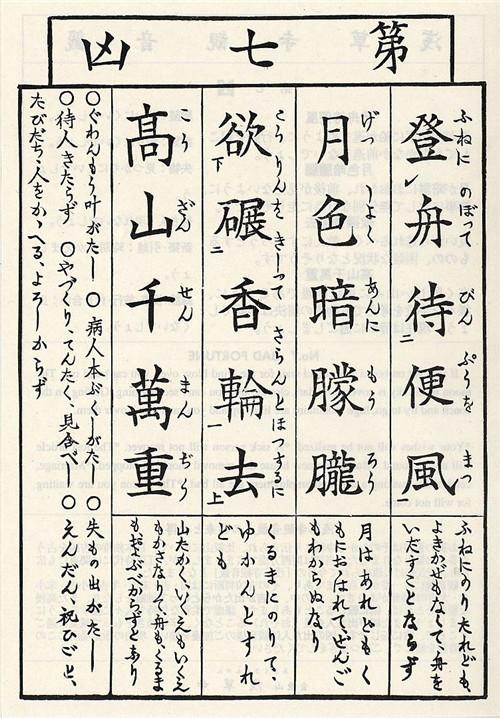 第七凶
ふねに のぼつて びん ぷうを まつ
登レ舟待二便風一
ふねにのりたれども、
よきかぜもなくて、舟を
いだすことならず
げつ しよく あんに もう ろう
月色暗朦朧
月はあれどもく
もにおほはれて、ぜんご
もわからぬなり
こうりんをきしつて さらんとほつするに
欲下碾二香輪一去上
くるまにのりて、
ゆかんとすれ
ども、
こう ざん せん まん ぢう
髙山千萬重
山たかく、いくえもいくえ
もかさなりて、舟もくるま
もおよぶべからずとあり
○ぐわんもう叶がたし ○病人本ぶくしがたし ○失もの出がたし
○待人きたらず ○やづくり、てんたく、見合べし ○えんだん、祝ひごと、
たびだち、人をかゝへる、よろしからず